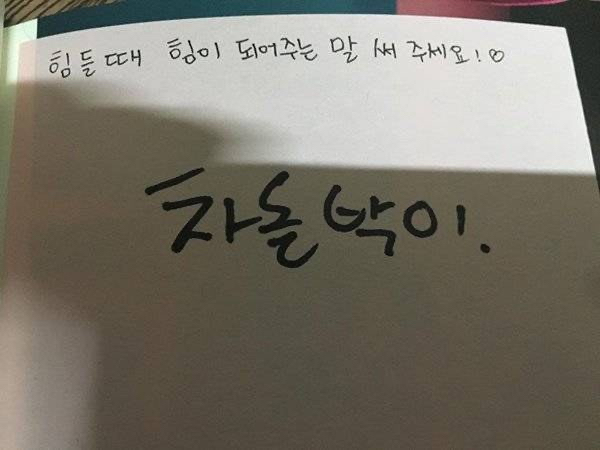 힘들때 힘이 되어주는 말 써 주세요!♡
차돌박이.